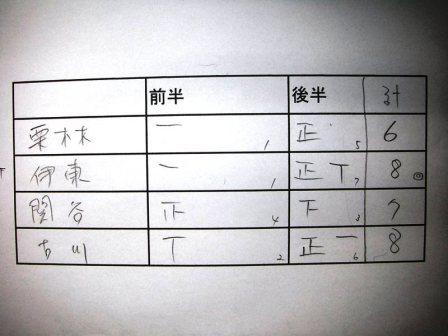 前半 後半 計
栗林 一 1 正 5 6
伊東 一 1 正丅 7 8 ◎
関谷 正 4 下 3 7
古川 丅 2 正一 6 8